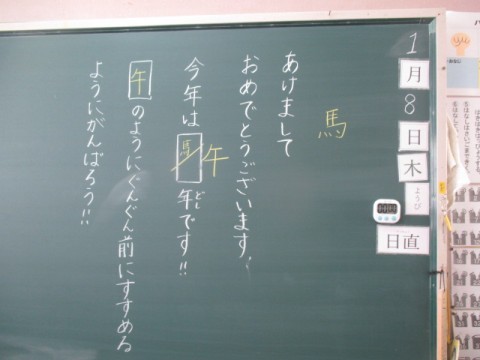 1月8日木
ようび
日直
馬
あけまして
おめでとうございます!
今年は馬午年です!!
どし
午のようにぐんぐん前にすすめる
ようにがんばろう!!